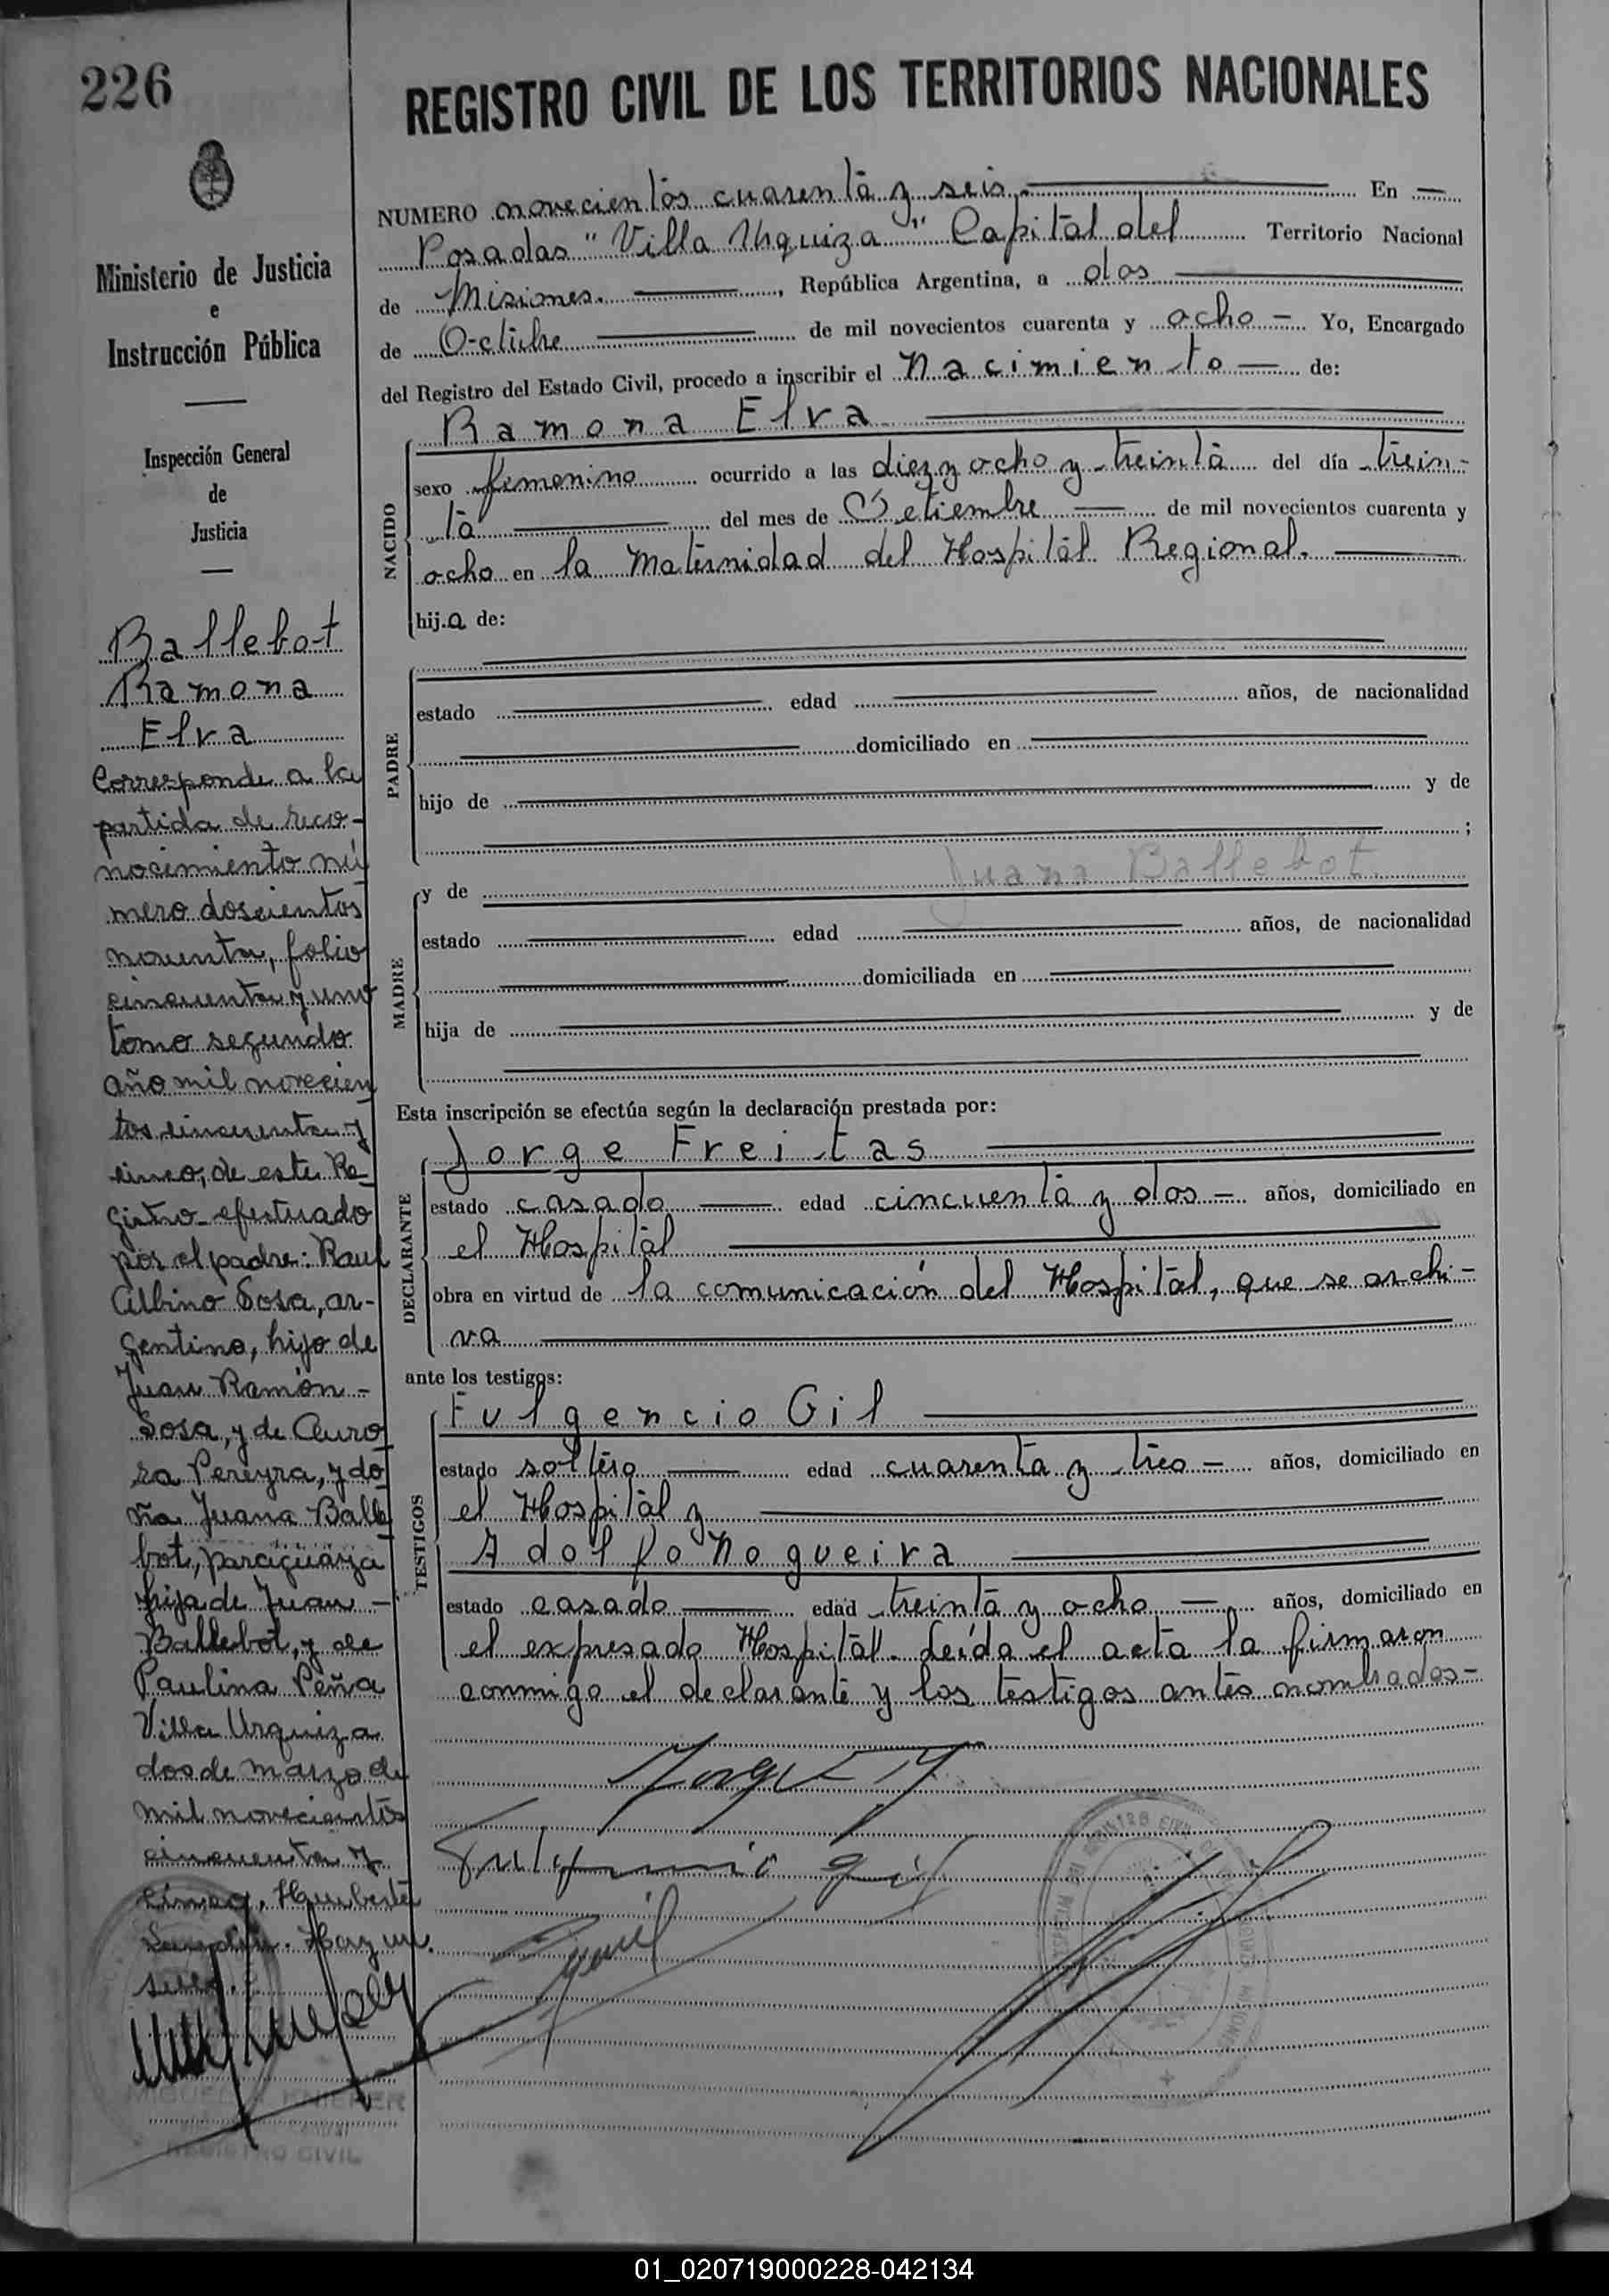 226
Ministerio de Justicia
e
Instrucción Pública
Inspección General
de
Justicia
Ballebot
Ramona
Elva
Corresponde a la
partida de reco-
nocimiento nú
mero doscientos
noventa, folio
cincuenta y uno
tomo segundo
año mil novecien
tos cincuenta y
cinco, de este Re-
gistro efectuado
por el padre: Raul
Albino Sosa, ar-
gentino, hijo de
Juan Ramón -
Sosa, y de Auro
ra Pereyra, y do
ña Juana Balle
bot, paraguaya
hija de Juan -
Ballebot, y de
Paulina Peña
Villa Urquiza
dos de marzo de
mil novecientos
cincuenta y
cinco. Humberto
Hay un
sello.
REGISTRO CIVIL
REGISTRO CIVIL DE LOS TERRITORIOS NACIONALES
NUMERO novecientos cuarenta y seis. En
Posadas "Villa Urquiza" Capital del Territorio Nacional
de Misiones. , República Argentina, a dos
de Octubre de mil novecientos cuarenta y ocho - Yo, Encargado
del Registro del Estado Civil, procedo a inscribir el Nacimiento - de:
Ramona Elva
NACIDO
sexo femenino ocurrido a las diez y ocho y treinta del día trein-
ta del mes de Setiembre de mil novecientos cuarenta y
ocho en la Maternidad del Hospital Regional.
hij.a de:
PADRE
estado edad años, de nacionalidad
domiciliado en
hijo de y de
;
Juana Ballebot
MADRE
y de
estado edad años, de nacionalidad
domiciliada en
hija de y de
Esta inscripción se efectúa según la declaración prestada por:
DECLARANTE
Jorge Freitas
estado casado edad cincuenta y dos - años, domiciliado en
el Hospital
obra en virtud de la comunicación del Hospital, que se archi-
va
ante los testigos:
TESTIGOS
Fulgencio Gil
estado soltero edad cuarenta y tres - años, domiciliado en
el Hospital y
Adolfo Nogueira
estado casado edad treinta y ocho - años, domiciliado en
el expresado Hospital. Leída el acta la firmaron
conmigo el declarante y los testigos antes nombrados-
Fulgencio Gil
01_020719000228-042134